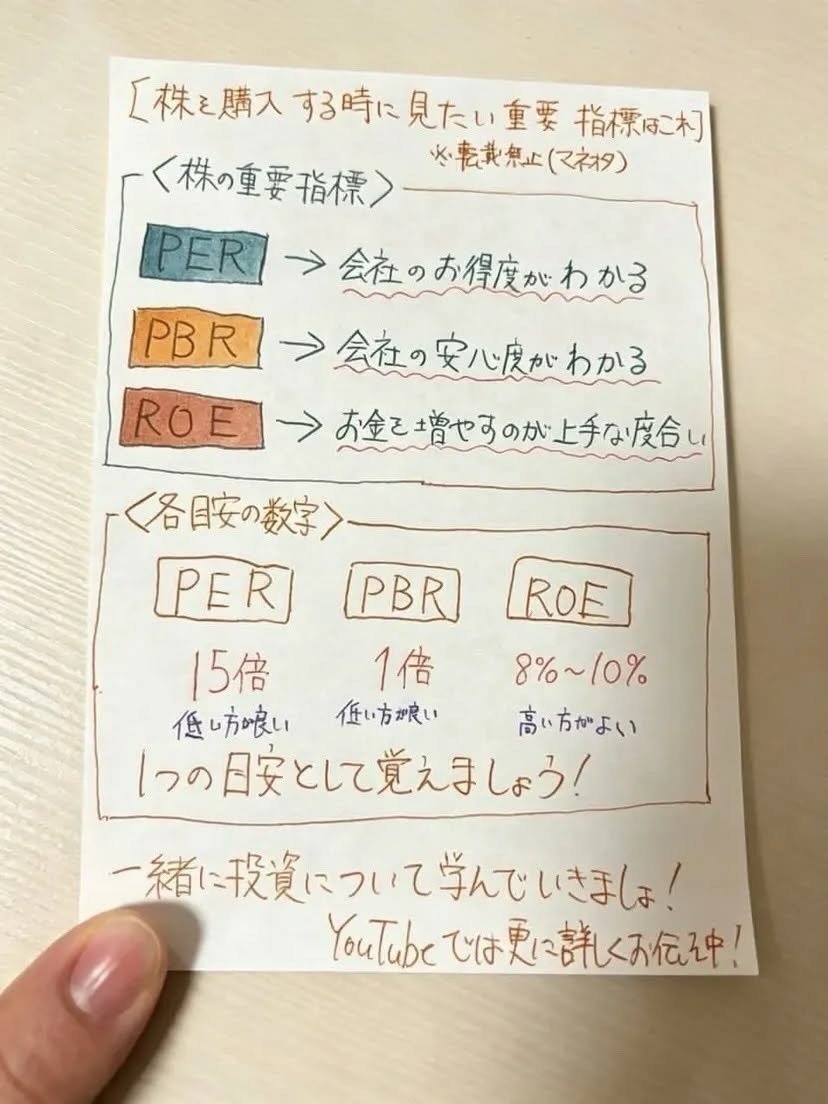 [株を購入する時に見たい重要指標はこれ]
※転載禁止(マネオタ)
〈株の重要指標〉
PER → 会社のお得度がわかる
PBR → 会社の安心度がわかる
ROE → お金を増やすのが上手な度合い
〈各目安の数字〉
PER PBR ROE
15倍 1倍 8%〜10%
低い方が良い 低い方が良い 高い方がよい
1つの目安として覚えましょう!
一緒に投資について学んでいきましょ!
YouTubeでは更に詳しくお伝え中!